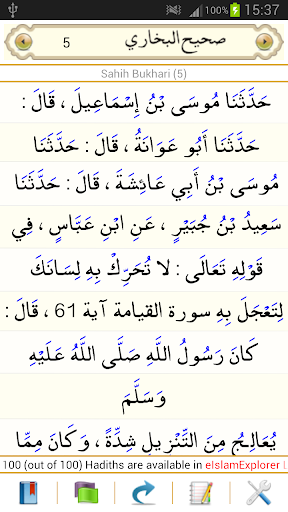 100% 15:37
5 صحيح البخاري
Sahih Bukhari (5)
حَدَّثَنَا مُوسَى بْنُ إِسْمَاعِيلَ ، قَالَ :
حَدَّثَنَا أَبُو عَوَانَةَ ، قَالَ : حَدَّثَنَا
مُوسَى بْنُ أَبِي عَائِشَةَ ، قَالَ : حَدَّثَنَا
سَعِيدُ بْنُ جُبَيْرٍ ، عَنِ ابْنِ عَبَّاسٍ ، فِي
قَوْلِهِ تَعَالَى : لا تُحَرِّكْ بِهِ لِسَانَكَ
لِتَعْجَلَ بِهِ سورة القيامة آية 61 ، قَالَ :
كَانَ رَسُولُ اللَّهِ صَلَّى اللَّهُ عَلَيْهِ
وَسَلَّمَ
يُعَالِجُ مِنَ التَّنْزِيلِ شِدَّةً ، وَكَانَ مِمَّا
100 (out of 100) Hadiths are available in eIslamExplorer L